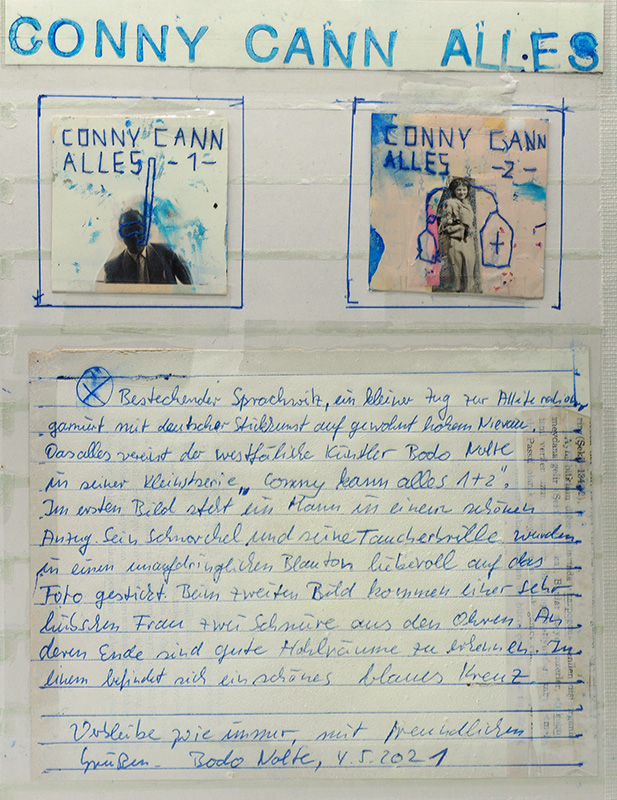 CONNY CANN ALLES
CONNY CANN
ALLES -1-
CONNY CANN
ALLES -2-
Bestechender Sprachwitz, ein kleiner Zug zur Alliteration
garniert mit deutscher Stickkunst auf gewohnt hohem Niveau.
Das alles vereint der westfälische Künstler Bodo Nolte
in seiner Kleinstserie „Conny kann alles 1+2".
Im ersten Bild steht ein Mann in einem schönen
Anzug. Sein Schnorchel und seine Taucherbrille wurden
in einen unaufdringlichen Blauton liebevoll auf das
Foto gestickt. Beim zweiten Bild kommen einer sehr
hübschen Frau zwei Schnüre aus den Ohren. An
deren Ende sind gute Hohlräume zu erkennen. In
einem befindet sich ein schönes blaues Kreuz.
Verbleibe wie immer, mit freundlichen
Grüßen. Bodo Nolte, 4.5.2021